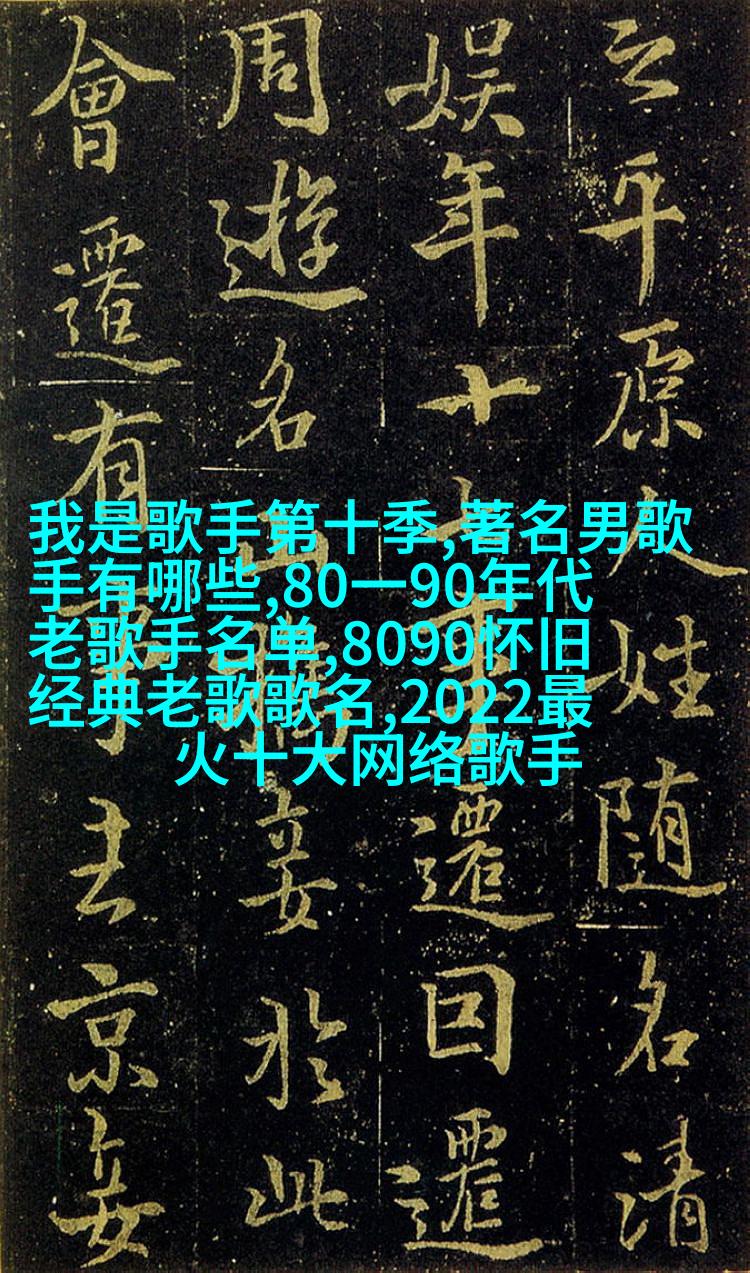 平原人姓随名清
娱年十還回還
周遊名山妾於此
會還有事去京妾
我是歌手第十季,著名男歌
手有哪些,80一90年代
老歌手名单,8090怀旧
经典老歌歌名,2022最
火十大网络歌手